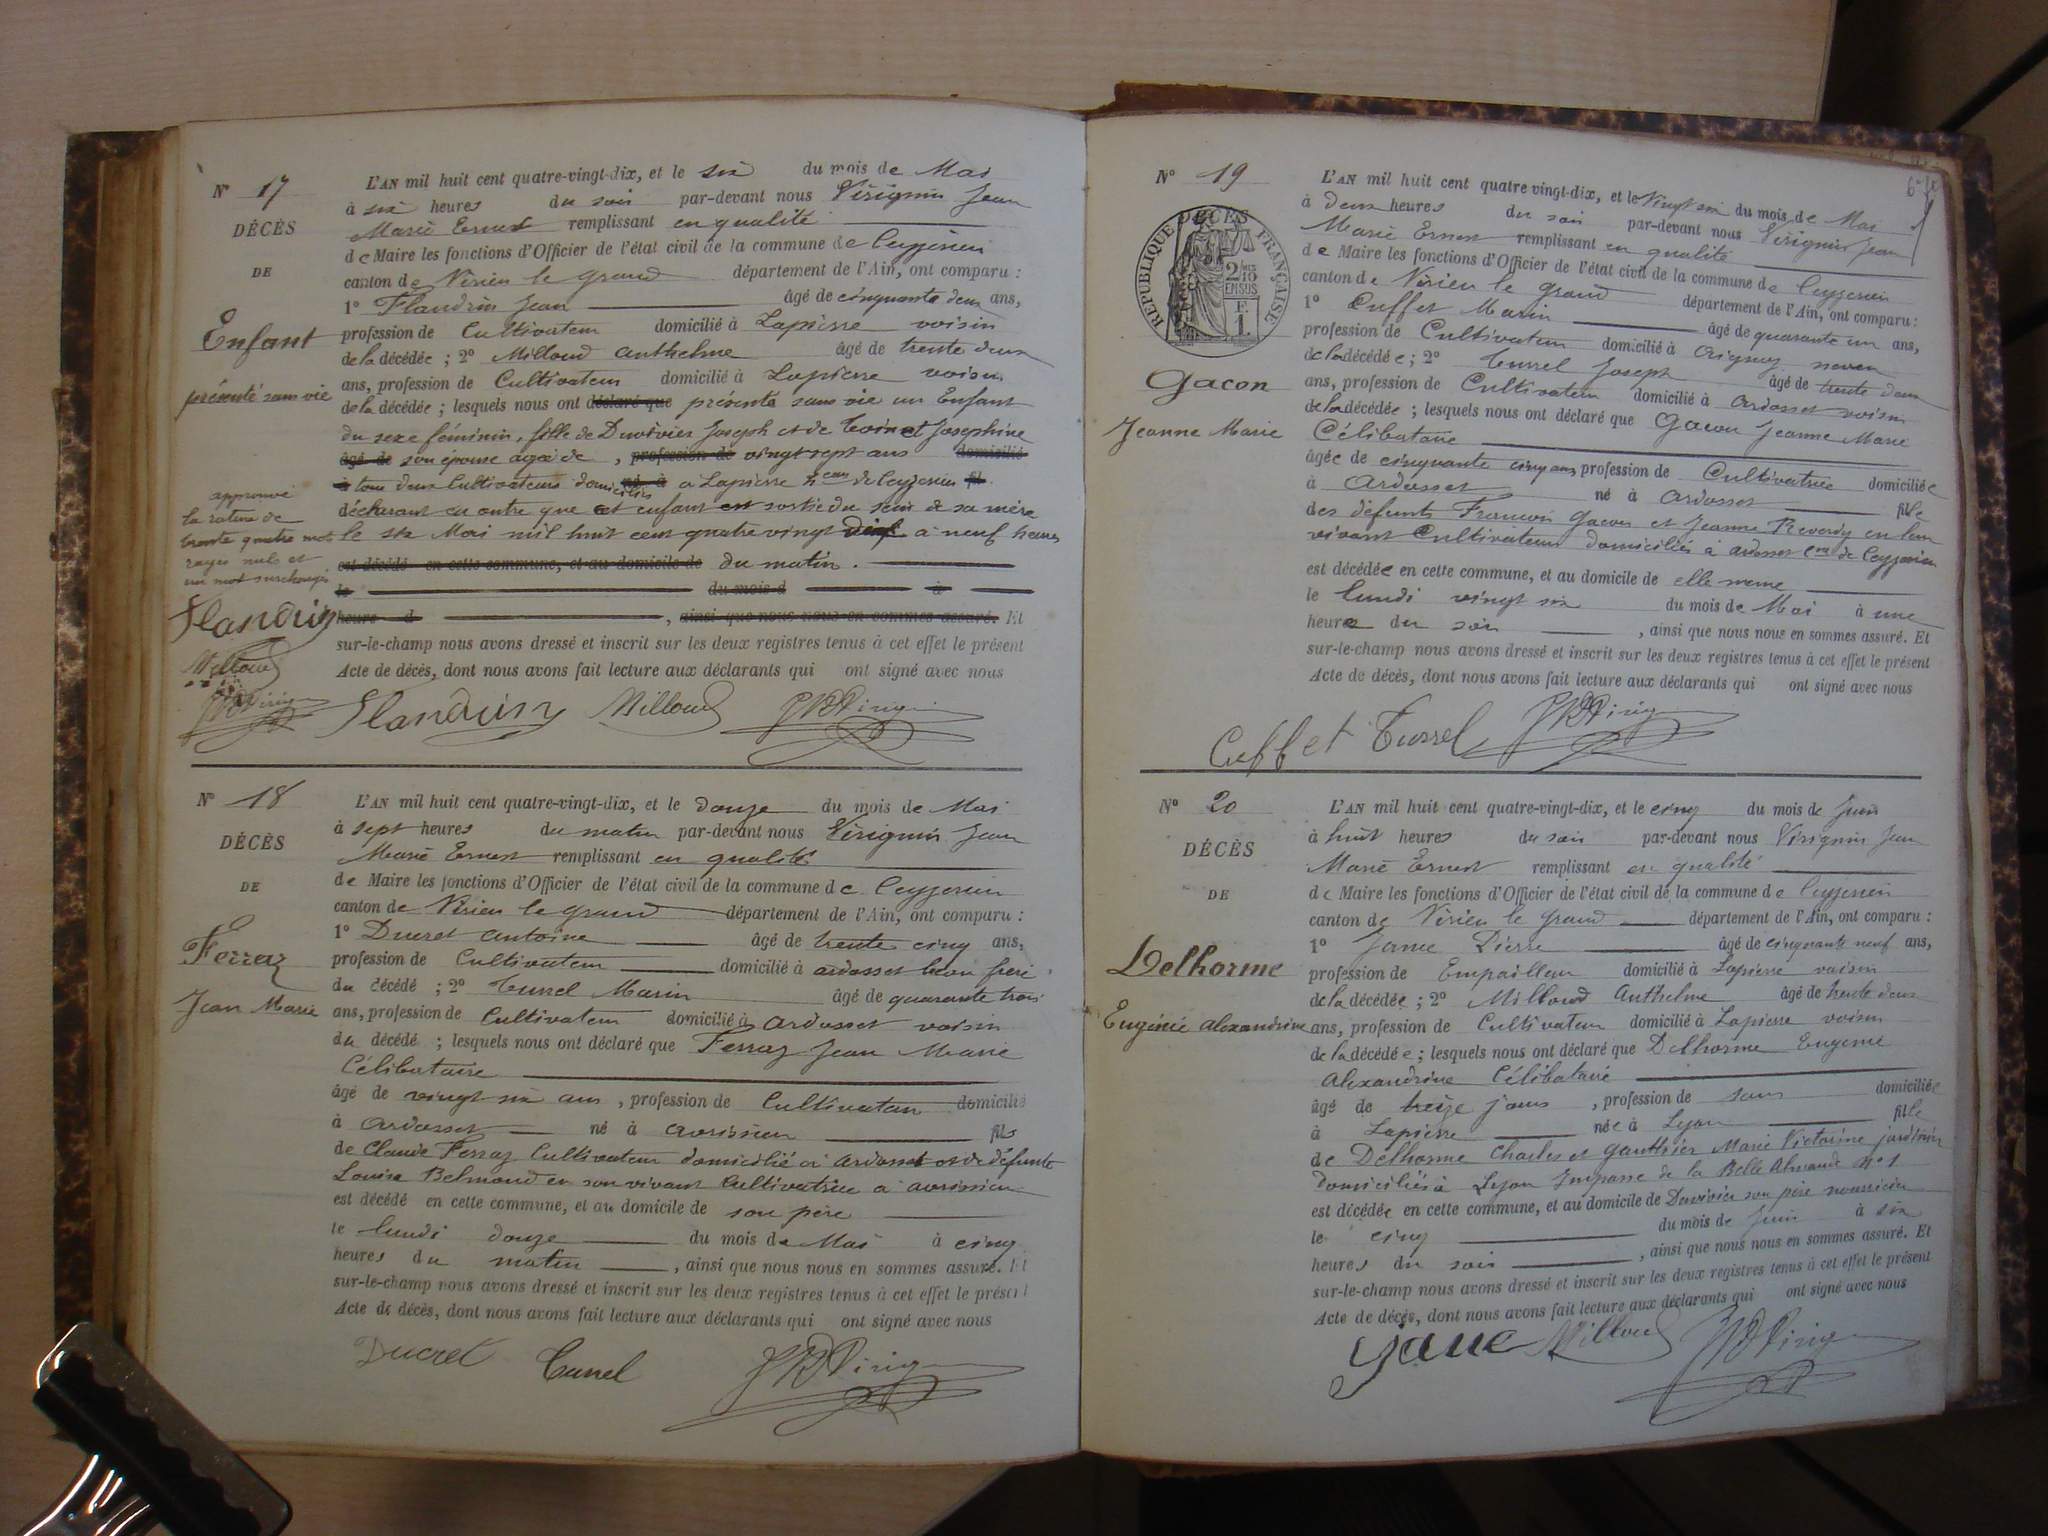 N° 17
DÉCÈS
DE
Enfant
présenté sans vie
L'AN mil huit cent quatre-vingt-dix, et le six du mois de Mai
à six heures du soir par-devant nous Virignin Jean
Marie Ernest remplissant en qualité
de Maire les fonctions d'Officier de l'état civil de la commune de Ceyzérieu
canton de Virieu le grand département de l'Ain, ont comparu :
1° Flandrin Jean âgé de cinquante deux ans,
profession de Cultivateur domicilié à Lapierre voisin
de la décédée ; 2° Milloud Anthelme âgé de trente deux
ans, profession de Cultivateur domicilié à Lapierre voisin
de la décédée ; lesquels nous ont déclaré que présenté sans vie un Enfant
du sexe féminin, fille de Duvivier Joseph et de Joséphine
âgé de son épouse agée de , profession de vingt sept ans domicilié
à tous deux Cultivateurs domiciliés né à à Lapierre heau de Ceyzérieu fil
déclarant en outre que cet enfant est sortie du sein de sa mère
le six Mai mil huit cent quatre vingt dix à neuf heures
est décédé en cette commune, et au domicile de du matin.
le du mois d à
heure d , ainsi que nous nous en sommes assuré. Et
sur-le-champ nous avons dressé et inscrit sur les deux registres tenus à cet effet le présent
Acte de décès, dont nous avons fait lecture aux déclarants qui ont signé avec nous
approuvé
la rature de
trente quatre mots
rayés nuls et
un mot surchargé
Flandrin
Milloud
Flandrin Milloud
N° 18
DÉCÈS
DE
Ferraz
Jean Marie
L'AN mil huit cent quatre-vingt-dix, et le douze du mois de Mai
à sept heures du matin par-devant nous Virignin Jean
Marie Ernest remplissant en qualité
de Maire les fonctions d'Officier de l'état civil de la commune de Ceyzérieu
canton de Virieu le grand département de l'Ain, ont comparu :
1° Ducret Antoine âgé de trente cinq ans,
profession de Cultivateur domicilié à Ardosset beau frère
du décédé ; 2° Turrel Marin âgé de quarante trois
ans, profession de Cultivateur domicilié à Ardosset voisin
du décédé ; lesquels nous ont déclaré que Ferraz Jean Marie
Célibataire
âgé de vingt six ans , profession de Cultivateur domicilié
à Ardosset né à Avrissieu fils
de Claude Ferraz Cultivateur domicilié à Ardosset et de défunte
Louise Belmond en son vivant Cultivatrice à Avrissieu
est décédé en cette commune, et au domicile de son père
le lundi douze du mois de Mai à cinq
heures du matin , ainsi que nous nous en sommes assuré. Et
sur-le-champ nous avons dressé et inscrit sur les deux registres tenus à cet effet le présent
Acte de décès, dont nous avons fait lecture aux déclarants qui ont signé avec nous
Ducret Turrel
N° 19
DÉCÈS
RÉPUBLIQUE FRANÇAISE
2/10
EN SUS
E
1
Gacon
Jeanne Marie
L'AN mil huit cent quatre vingt-dix, et le Vingt six du mois de Mai
à deux heures du soir par-devant nous Virignin Jean
Marie Ernest remplissant en qualité
de Maire les fonctions d'Officier de l'état civil de la commune de Ceyzérieu
canton de Virieu le grand département de l'Ain, ont comparu :
1° Cuffet Marin âgé de quarante un ans,
profession de Cultivateur domicilié à Avignoz neveu
de la décédée ; 2° Turrel Joseph âgé de trente deux
ans, profession de Cultivateur domicilié à Ardosset voisin
de la décédée ; lesquels nous ont déclaré que Gacon Jeanne Marie
Célibataire
âgée de cinquante cinq ans, profession de Cultivatrice domiciliée
à Ardosset né à Ardosset fille
des défunts François Gacon et Jeanne Reverdy en leur
vivant Cultivateurs domiciliés à ardosset Cne de Ceyzérieu
est décédée en cette commune, et au domicile de elle même
le lundi vingt six du mois de Mai à une
heure du soir , ainsi que nous nous en sommes assuré. Et
sur-le-champ nous avons dressé et inscrit sur les deux registres tenus à cet effet le présent
Acte de décès, dont nous avons fait lecture aux déclarants qui ont signé avec nous
Cuffet Turrel
N° 20
DÉCÈS
DE
Delhorme
Eugénie Alexandrine
L'AN mil huit cent quatre-vingt-dix, et le cinq du mois de Juin
à huit heures du soir par-devant nous Virignin Jean
Marie Ernest remplissant en qualité
de Maire les fonctions d'Officier de l'état civil de la commune de Ceyzérieu
canton de Virieu le Grand département de l'Ain, ont comparu :
1° Jame Pierre âgé de cinquante neuf ans,
profession de Empailleur domicilié à Lapierre voisin
de la décédée ; 2° Milloud Anthelme âgé de trente deux
ans, profession de Cultivateur domicilié à Lapierre voisin
de la décédée ; lesquels nous ont déclaré que Delhorme Eugénie
Alexandrine Célibataire
âgé de treize jours , profession de sans domiciliée
à Lapierre née à Lyon fille
de Delhorme Charles et Gauthier Marie Victorine
domiciliés à Lyon Impasse de la Belle Almande N° 1
est décédée en cette commune, et au domicile de Duvivier son père nourricier
le cinq du mois de Juin à six
heures du soir , ainsi que nous nous en sommes assuré. Et
sur-le-champ nous avons dressé et inscrit sur les deux registres tenus à cet effet le présent
Acte de décès, dont nous avons fait lecture aux déclarants qui ont signé avec nous
Milloud